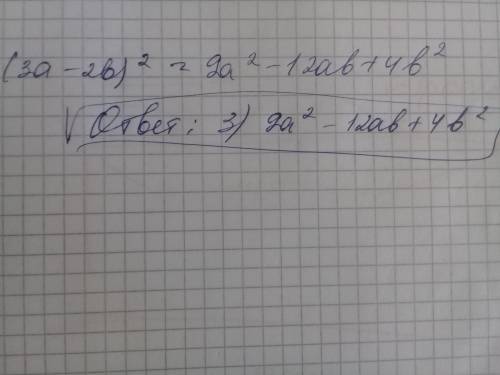 (3a - 2b)² = 9a² - 12ab + 4b²
Ответ: 3) 9a² - 12ab + 4b²